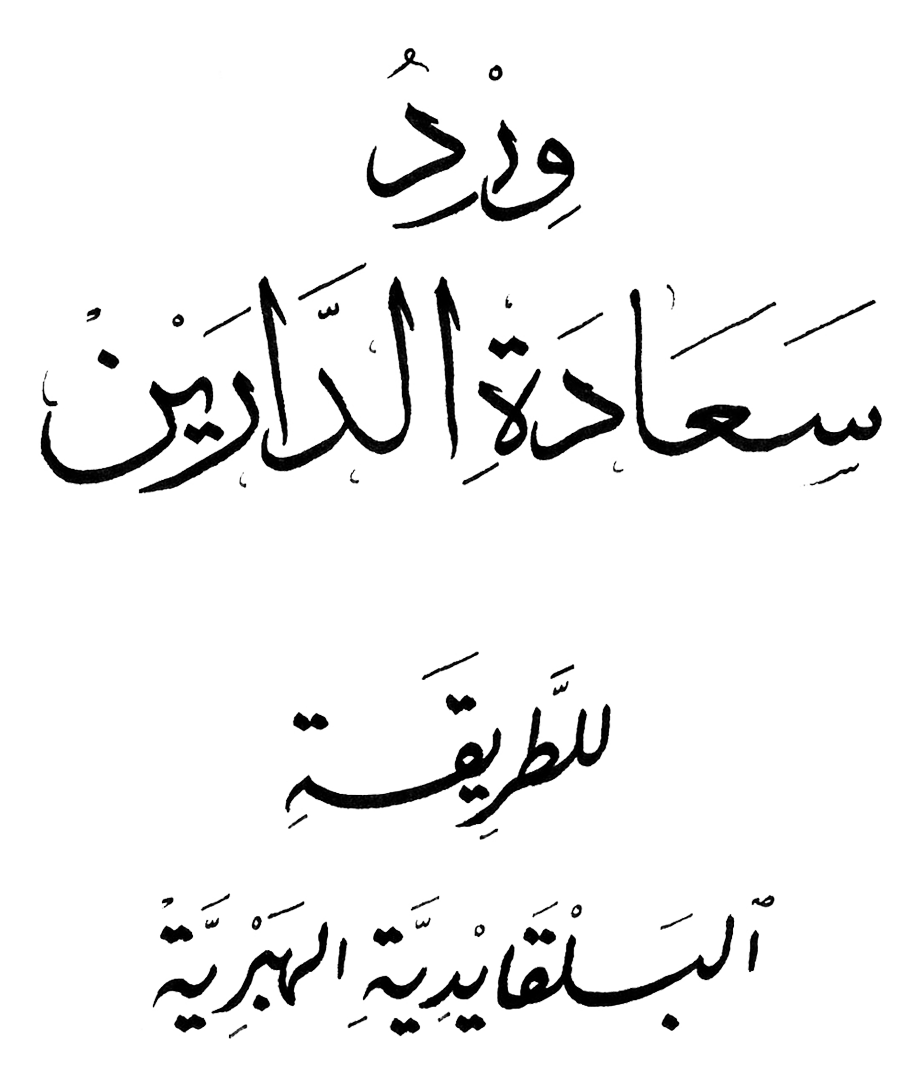 وِرْدُ
سَعَادَةِ الدَّارَيْنِ
للطَّرِيقَةِ
ٱلبَلْقَايْدِيَّةِ الهَبْرِيَّةِ